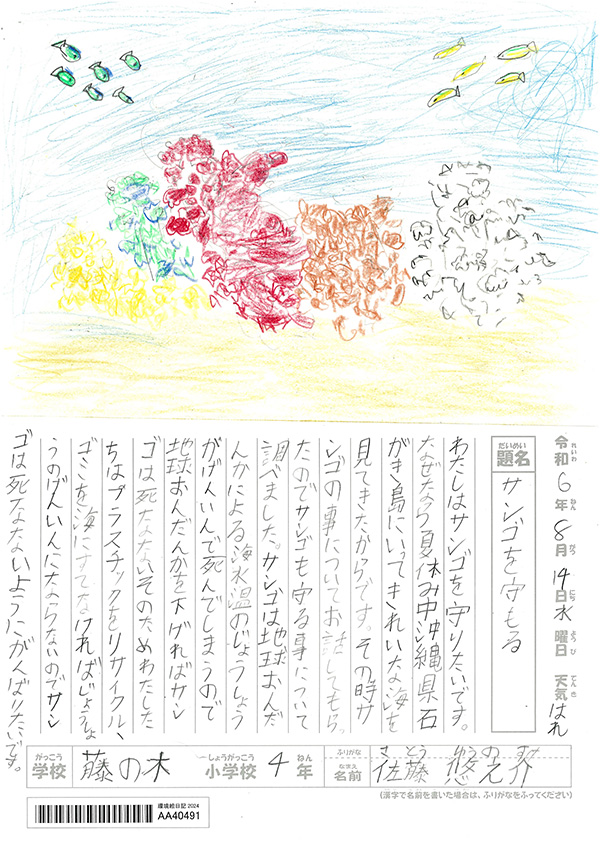 令和6年8月14日水曜日 天気はれ
れいわ ねん がつ にち ようび てんき
だいめい
題名
サンゴを守もる
わたしはサンゴを守りたいです。
なぜなら夏休み中沖縄県石
がき島にいってきれいな海を
見てきたからです。その時サ
ンゴの事についてお話してもら
たのでサンゴも守る事について
調べました。サンゴは地球おんだ
んかによる海水温のじょうしょう
がげんいんで死んでしまうので
地球おんだんかを下げればサン
ゴは死なないそのためわたした
ちはプラスチックをリサイクル、
ゴミを海にすてなければじょうしょ
うのげんいんにならないのでサン
ゴは死なないようにがんばりたいです。
がっこう
学校
藤の木
しょうがっこう
小学校
4
ねん
年
ふりがな
さとう ゆうのすけ
なまえ
名前
佐藤 悠之介
(漢字で名前を書いた場合は、ふりがなをふってください)
環境絵日記 2024
AA40491